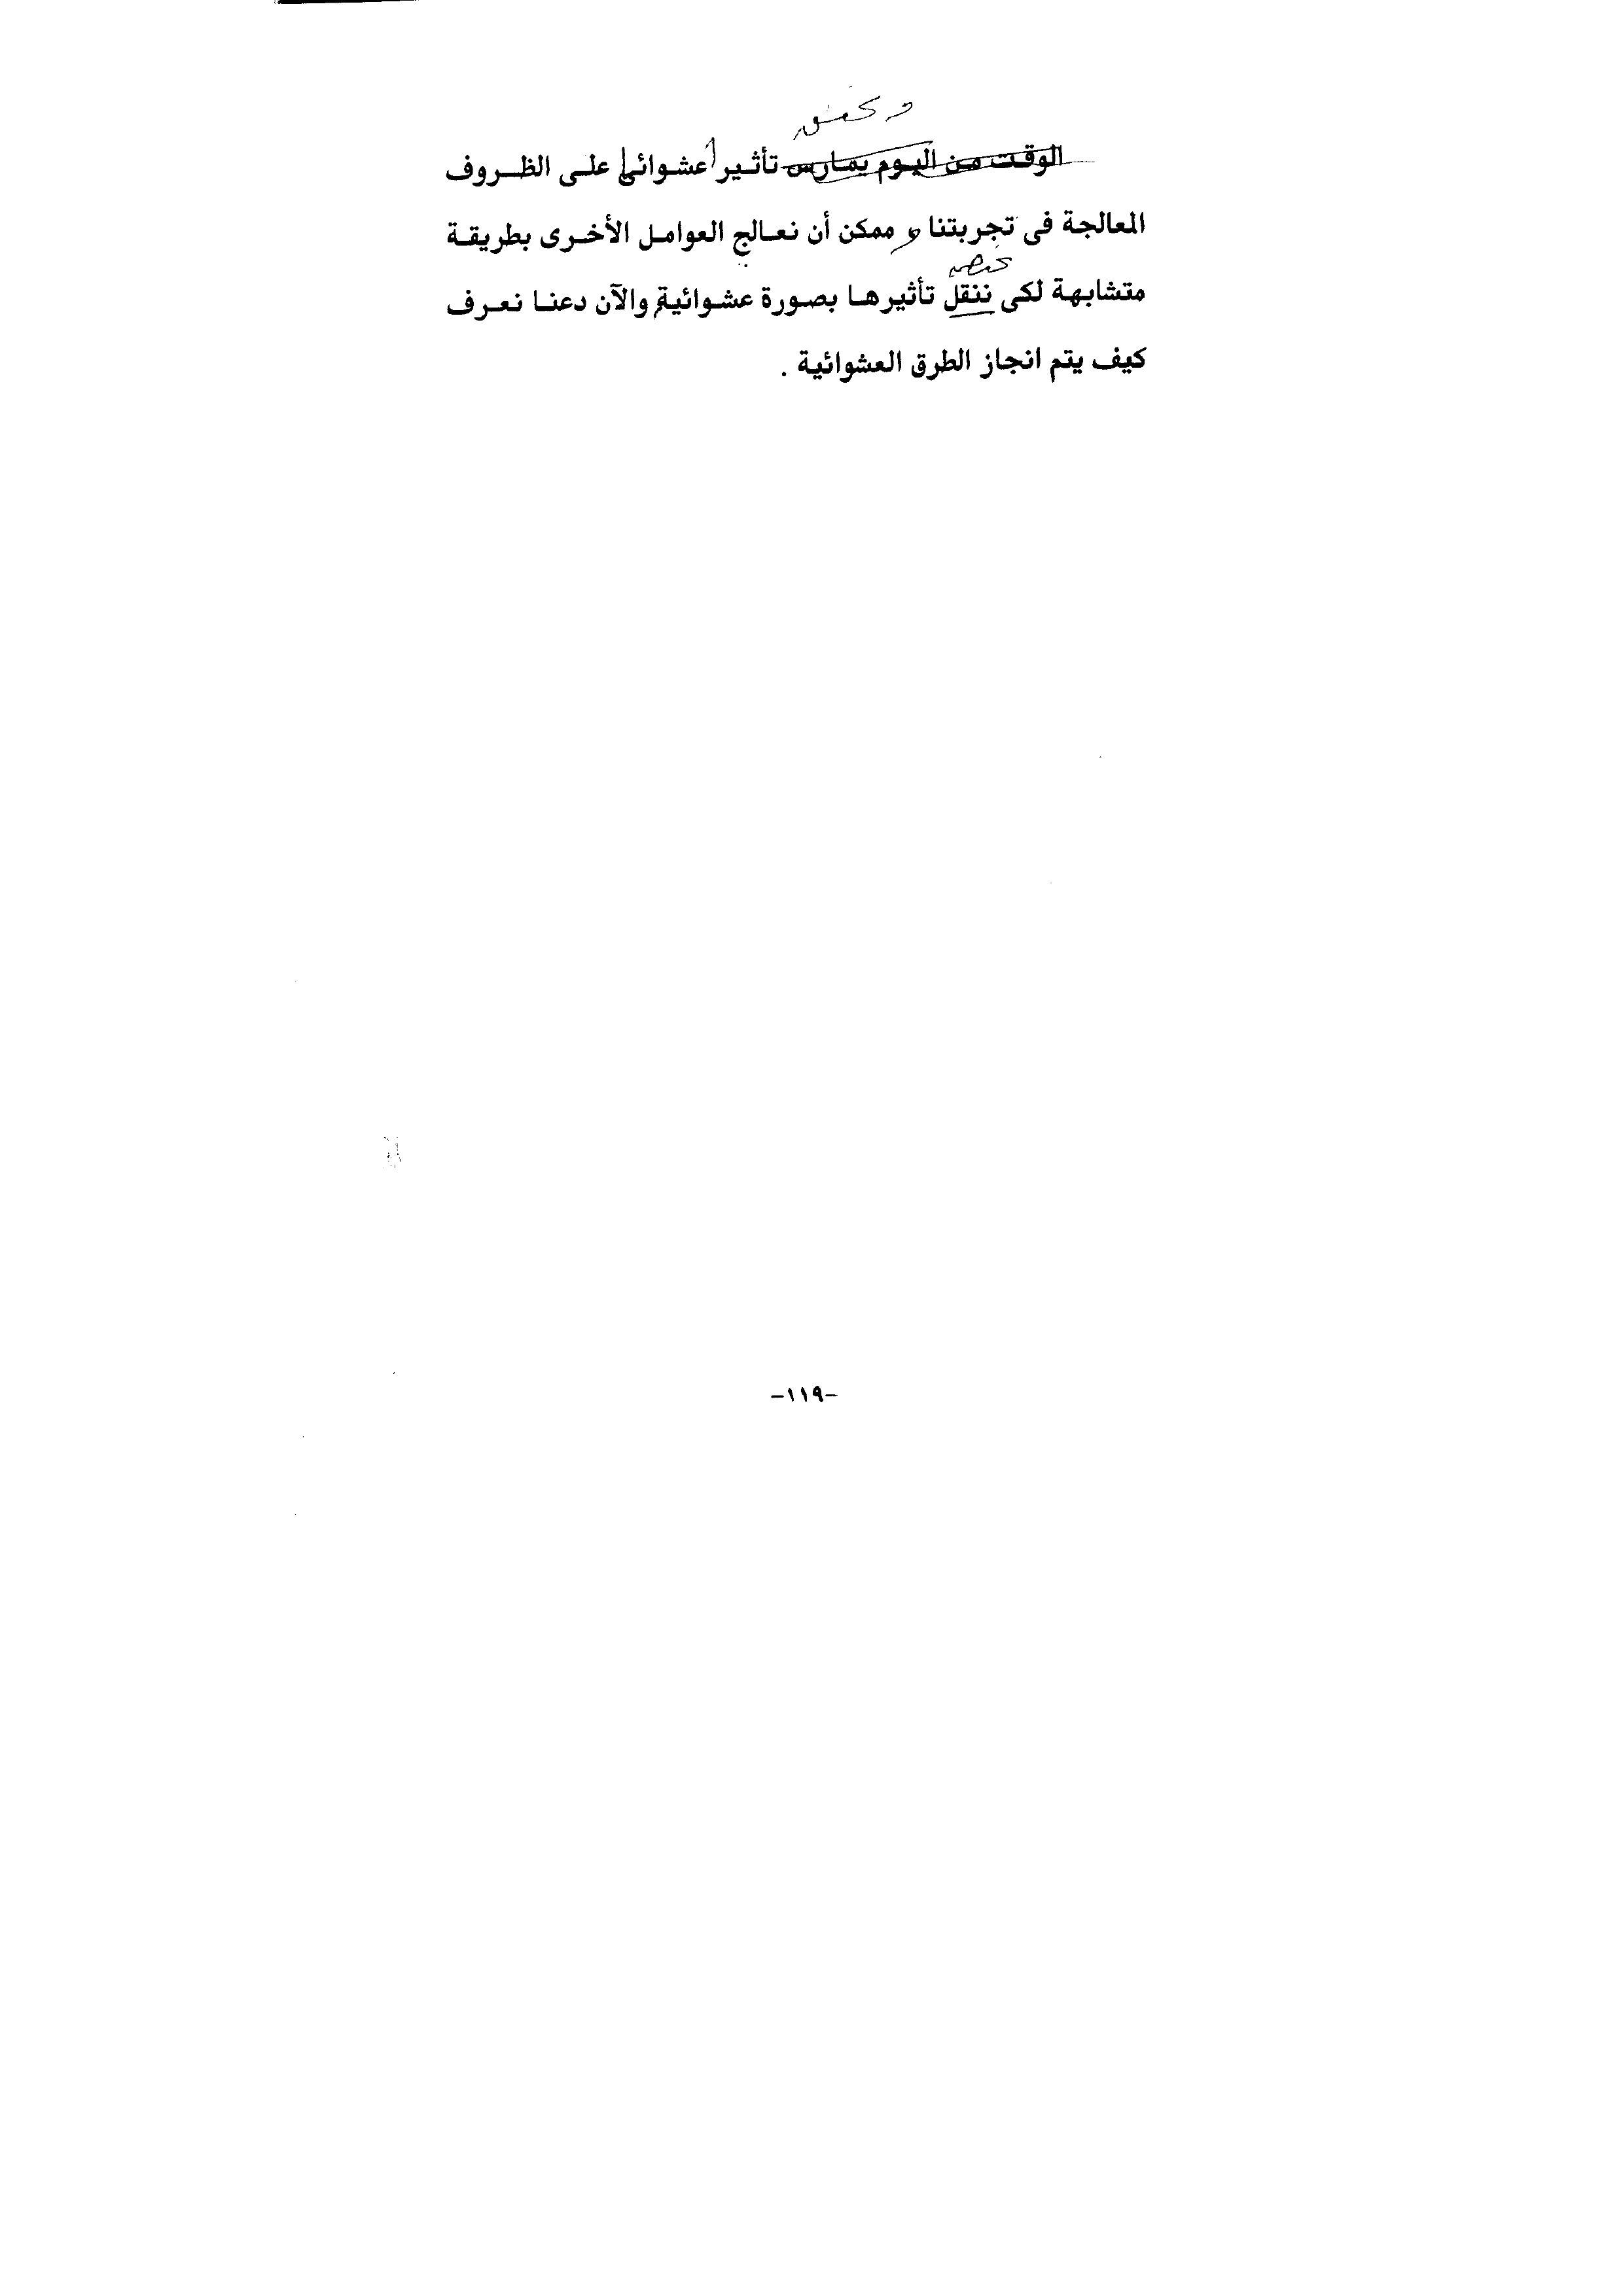 الوقت من اليوم يمارس تأثيرا عشوائيا على الظروف
المعالجة فى تجربتنا و ممكن أن نعالج العوامل الأخرى بطريقة
متشابهة لكى ننقل تأثيرها بصورة عشوائية والآن دعنا نعرف
كيف يتم انجاز الطرق العشوائية .
-١١٩-